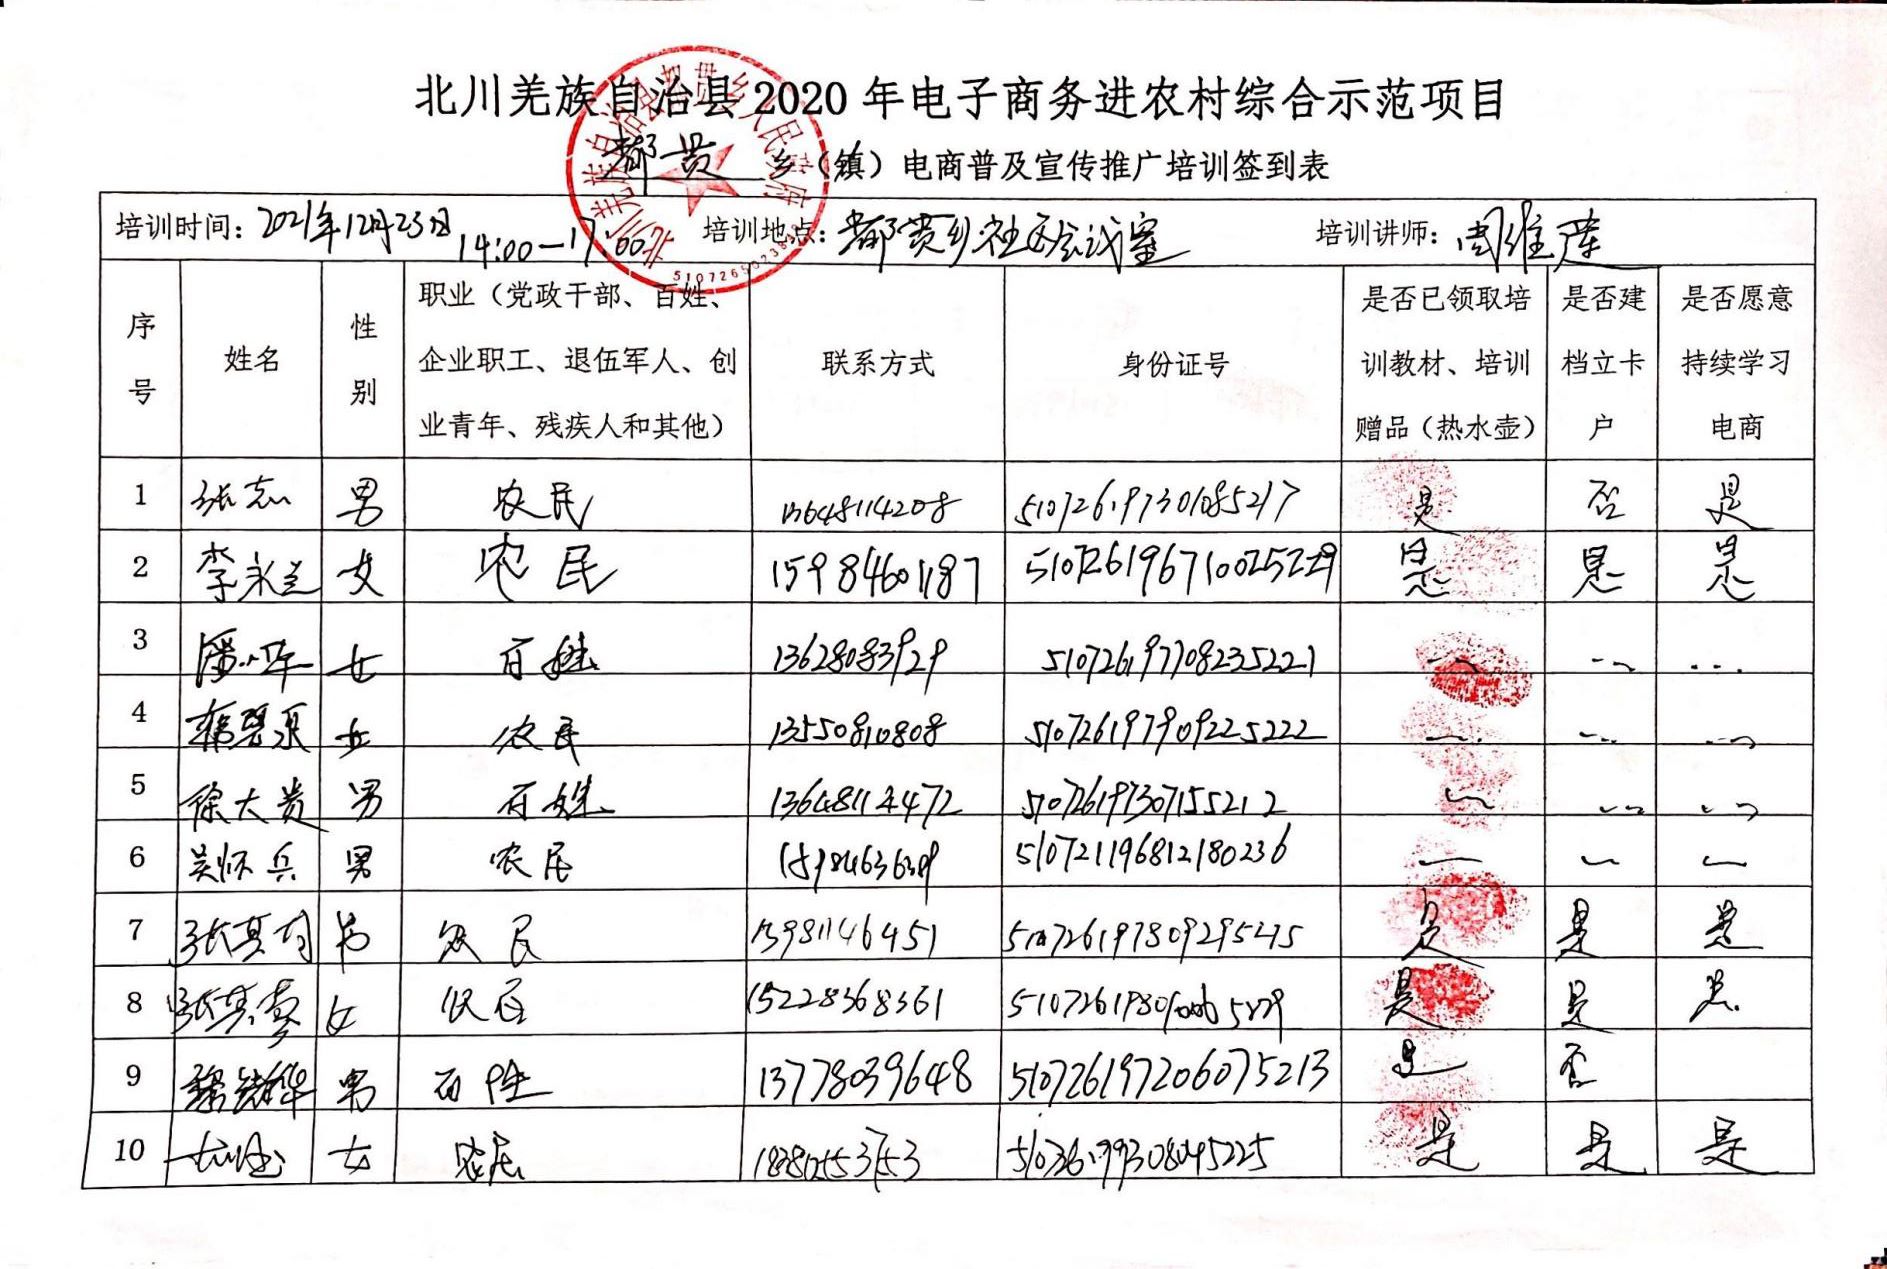 北川羌族自治县 2020 年电子商务进农村综合示范项目
都贯 乡（镇）电商普及宣传推广培训签到表
培训时间：2021年12月23日 14:00—17:00 培训地点：都贯乡社区会议室 培训讲师：周维莲
序号 姓名 性别 职业（党政干部、百姓、企业职工、退伍军人、创业青年、残疾人和其他） 联系方式 身份证号 是否已领取培训教材、培训赠品（热水壶） 是否建档立卡户 是否愿意持续学习电商
1 张志 男 农民 13648114208 510726197301085217 是 否 是
2 李永兰 女 农民 15984601187 510726196710025229 是 是 是
3 女 百姓 13628083929 510726197708235221
4 女 农民 13550810808 510726197909225222
5 徐大贵 男 百姓 13648114472 510726197307155212
6 吴怀兵 男 农民 510721196812180236
7 男 农民 13981146451 是 是 是
8 女 农民 15228368361 是 是 是
9 男 百姓 13778039648 510726197206075213 是 否
10 女 农民 是 是 是